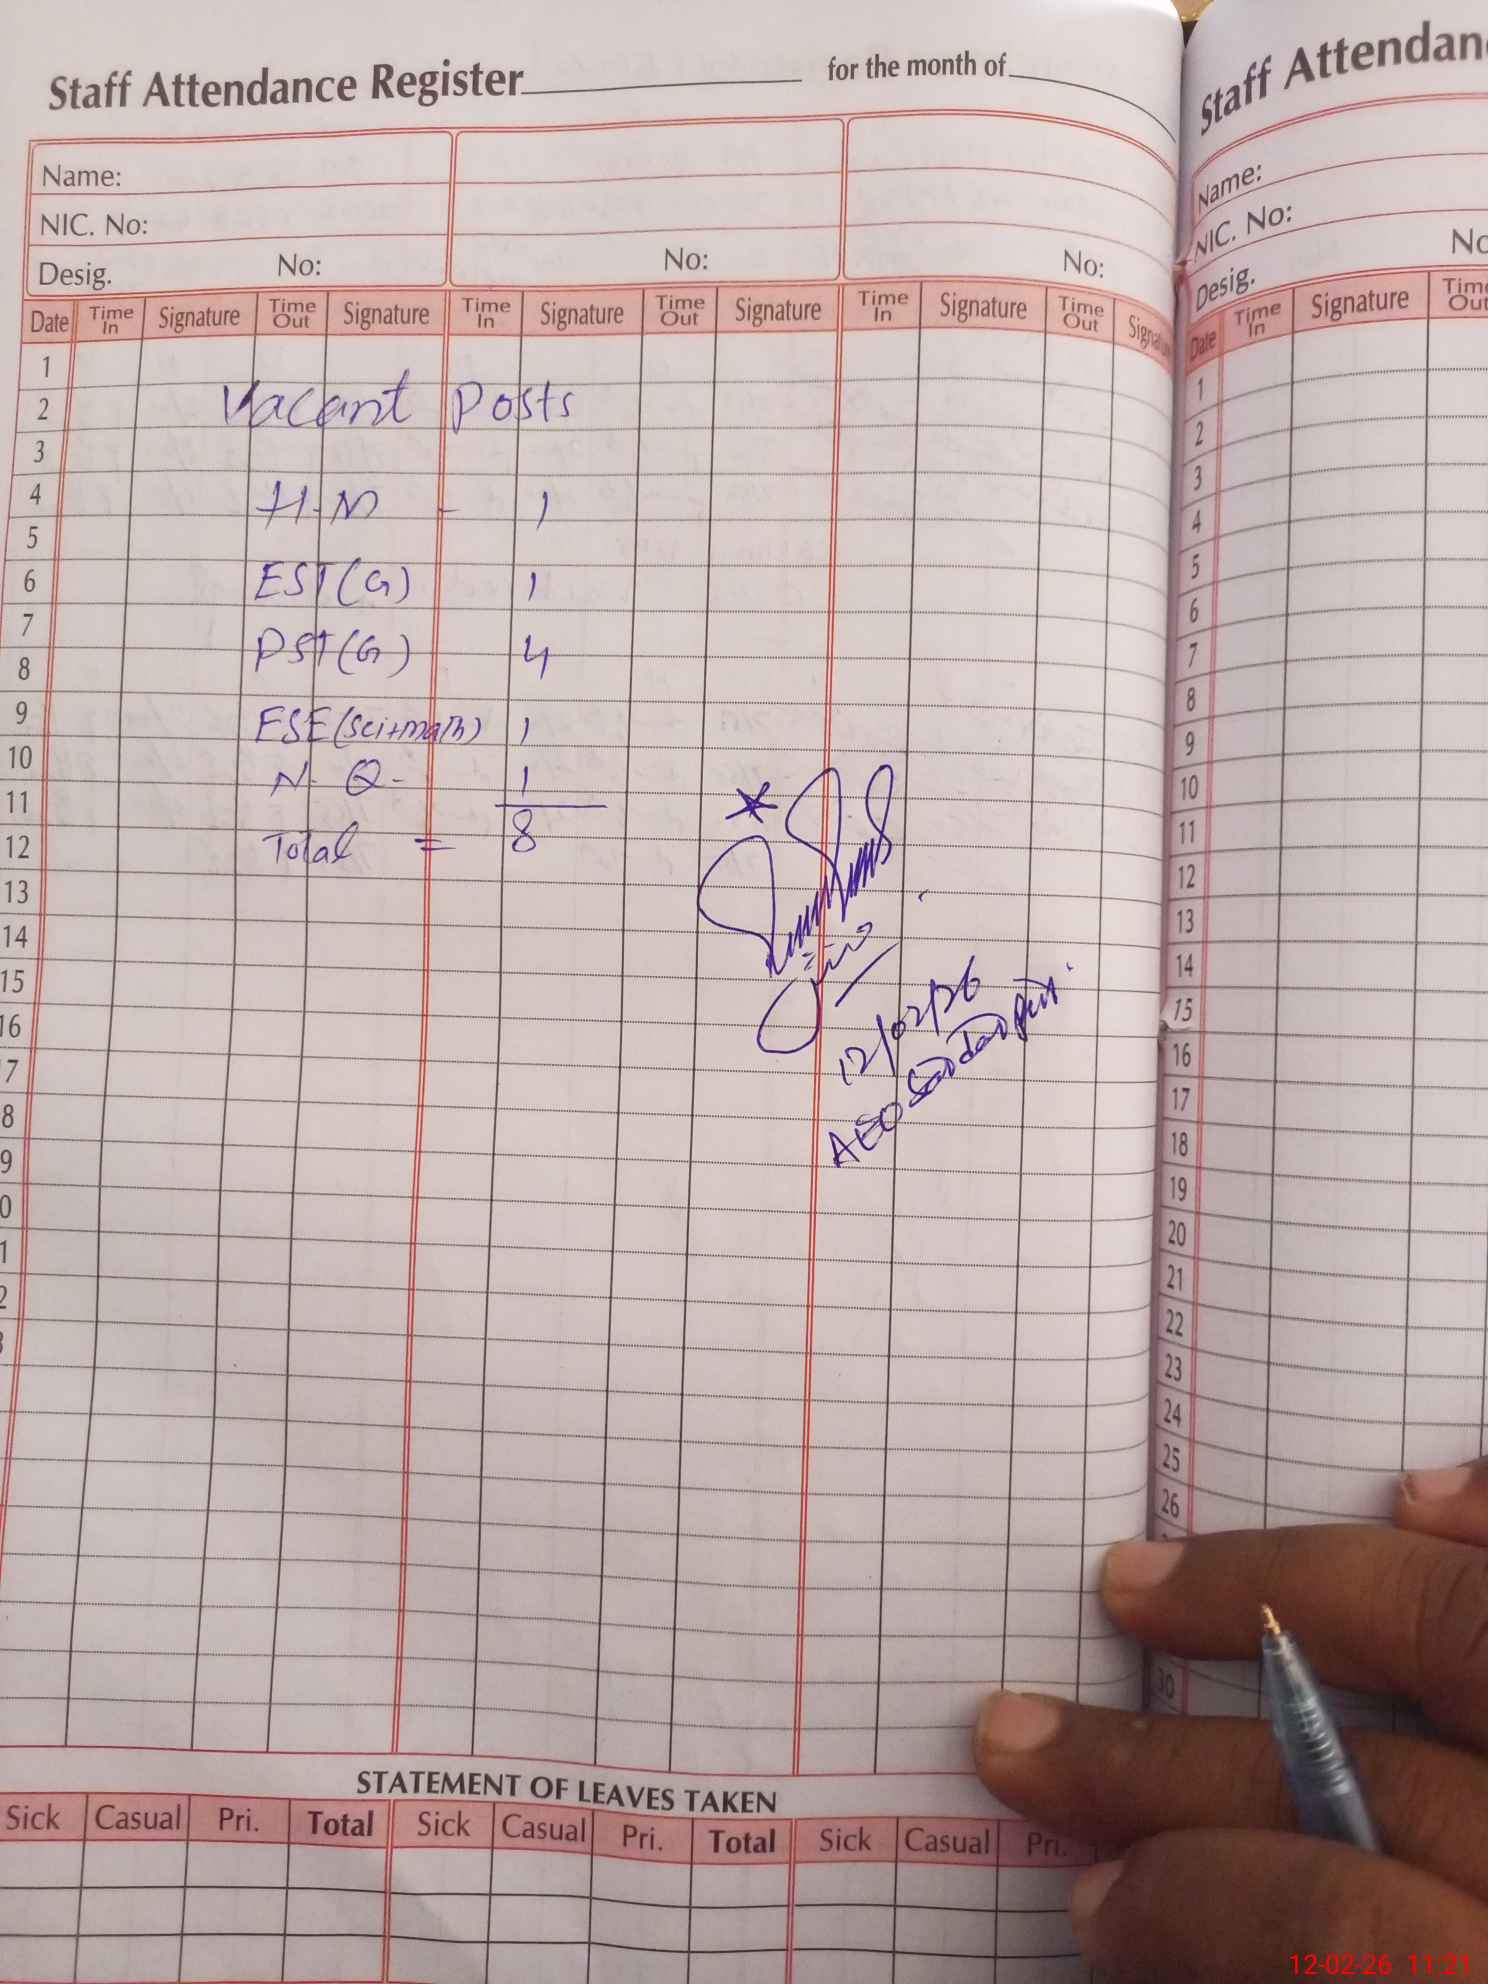 Staff Attendance Register for the month of
Name:
NIC. No:
Desig. No: No: No:
Date Time In Signature Time Out Signature Time In Signature Time Out Signature Time In Signature Time Out Signatu
1
2
3
4
5
6
7
8
9
10
11
12
13
14
15
16
7
8
9
0
1
2
3
Vacant Posts
H.M - 1
EST(G) 1
PST(G) 4
ESE(Sci+math) 1
N. Q- 1
Total = 8
12/02/26
AEO Sardarpur
STATEMENT OF LEAVES TAKEN
Sick Casual Pri. Total Sick Casual Pri. Total Sick Casual Pri.
Staff Attendan
Name:
NIC. No:
Desig. No
Date Time In Signature Time Out
1
2
3
4
5
6
7
8
9
10
11
12
13
14
15
16
17
18
19
20
21
22
23
24
25
26
30
12-02-26 11:21